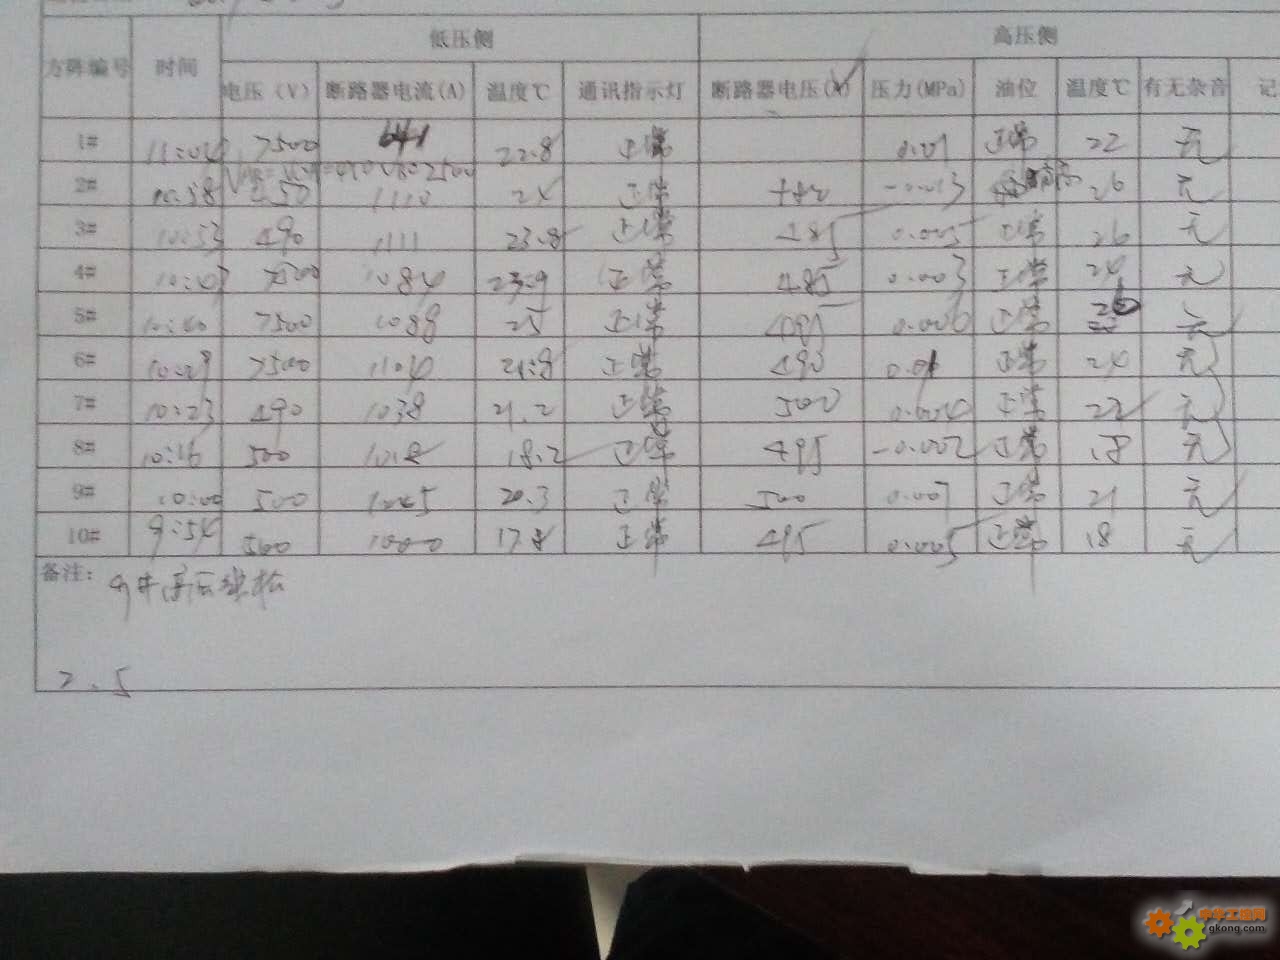 低压侧 高压侧
方阵编号 时间 电压（V） 断路器电流(A) 温度℃ 通讯指示灯 断路器电压( ) 压力(MPa) 油位 温度℃ 有无杂音 记
1# 11:04 >500 641 22.8 正常 正常 22 无
2# 10:58 1110 24 正常 -0.003 26 无
3# 10:53 490 1111 23.8 正常 485 0.005 正常 26 无
4# >500 1084 23.9 正常 485 0.003 正常 24 无
5# 10:40 >500 1088 25 正常 0.006 正常 26 无
6# 10:29 >500 1104 21.8 正常 490 0.01 正常 24 无
7# 10:23 490 1038 21.2 正常 500 0.004 正常 22 无
8# 10:16 500 1018 18.2 正常 495 -0.002 正常 18 无
9# 10:00 500 1045 20.3 正常 500 0.007 正常 21 无
10# 9:54 500 1000 17.8 正常 495 0.005 正常 18 无
备注：
2.5
中华工控网
gkong.com